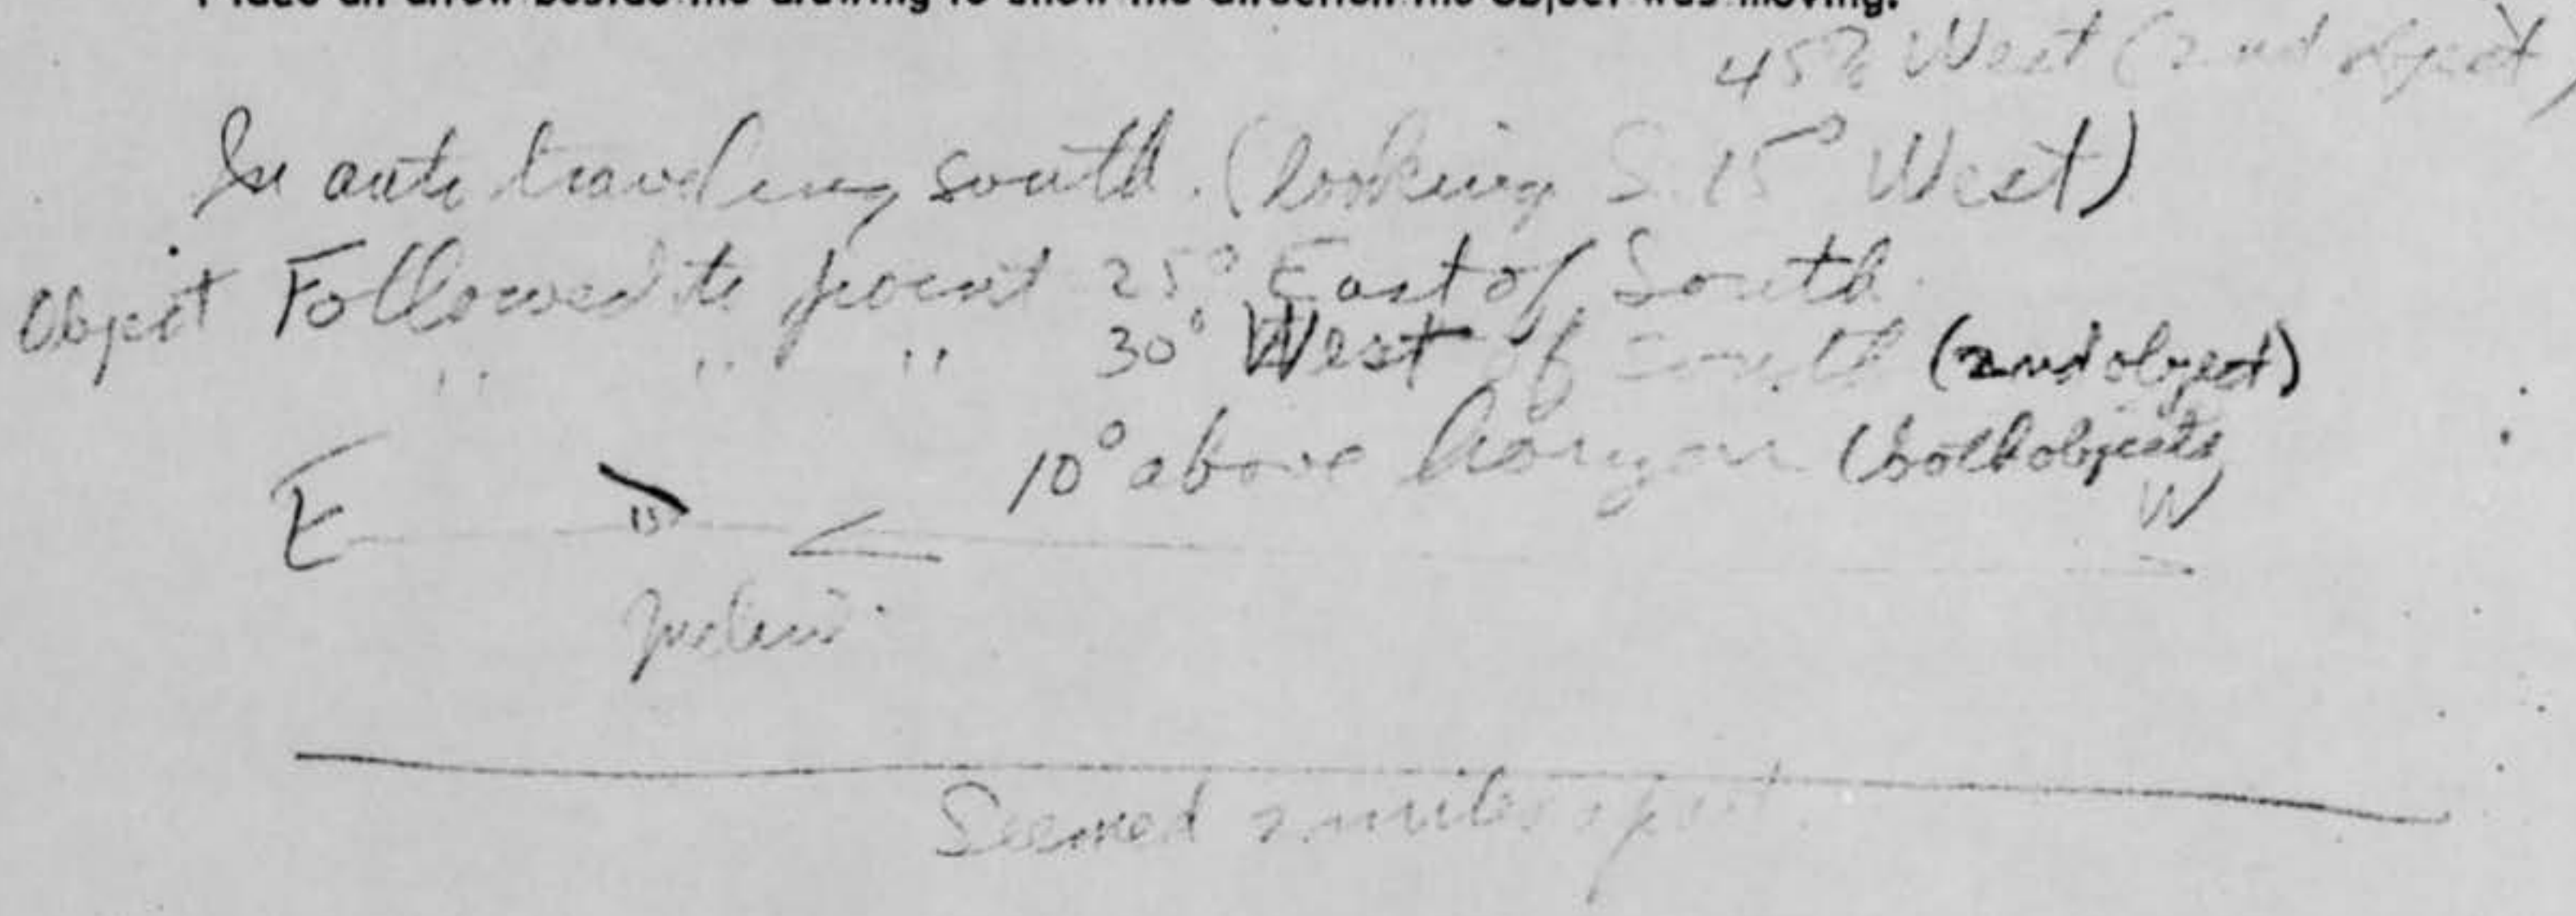 Place an arrow beside the drawing to show the direction the object was moving.
45° West (2nd object)
In auto traveling south. (looking S. 15° West)
Object Followed to point 25° East of South
" " " 30° West of South (2nd object)
10° above horizon (both objects
E W
Seemed 2 miles apart.